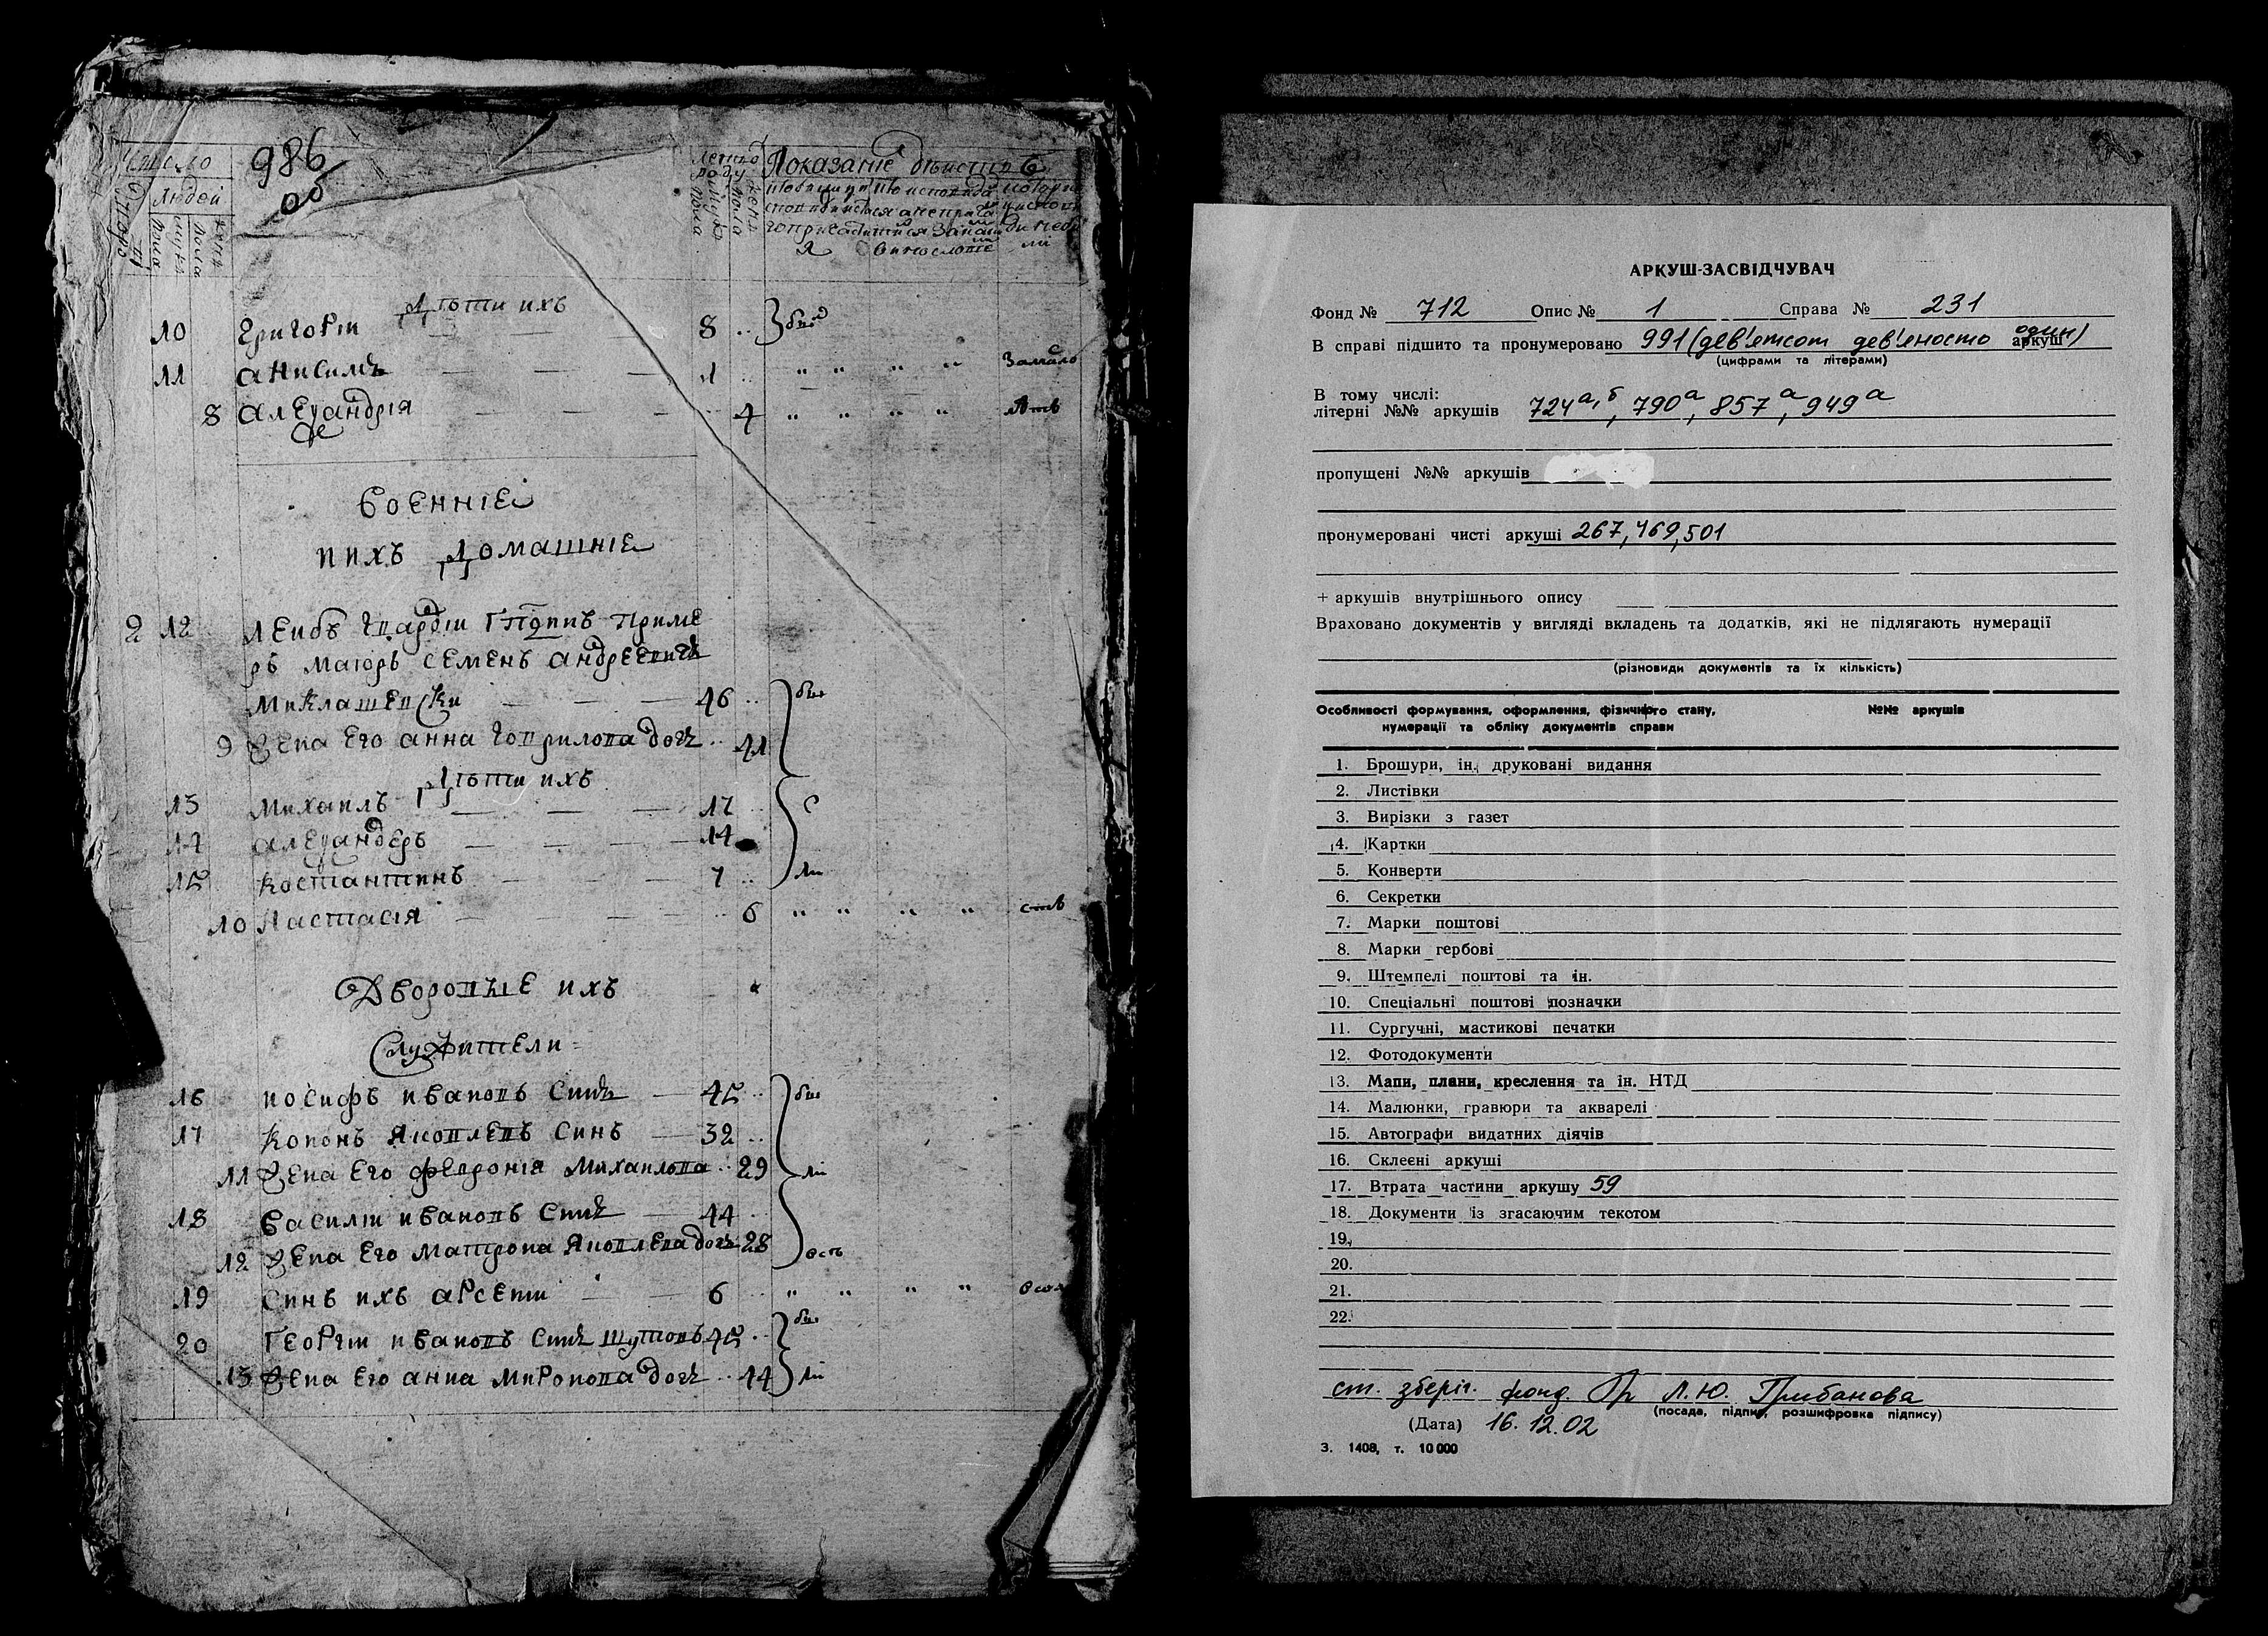 Число
986
об
Людей
Показанїе дѣиств
мужска пола
женска пола
Дѣти ихъ
10 Григорїи 8
11 анисимъ 1 " " " " Замало
8 алеѯандрїя 4 " " " " лѣтѣ
военнїе
и ихъ домашнїе
2 12 леибъ гвардїи
маїоръ семенъ андреевичъ
миклашевски 46 бы
9 Жена его анна гаврилова дочъ 41
Дѣти ихъ
13 михаилъ 17 с
14 алеѯандеръ 14
15 костантинъ 7 ли
10 Настасїя 6 " " " " ств
Дворовые ихъ
Служители
16 иосифъ ивановъ синъ 45 бы
17 кононъ яковлевъ синъ 32
11 Жена его феврония михаилова 29 ли
18 василїи ивановъ синъ 44
12 Жена его матрона яковлева дочъ 28
19 синъ ихъ арсенїи 6 " " " "
20 Георгїи ивановъ синъ шутовъ 45 бы
13 Жена его анна миронова дочъ 44 ли
АРКУШ-ЗАСВІДЧУВАЧ
Фонд № 712 Опис № 1 Справа № 231
В справі підшито та пронумеровано 991 (дев'ятсот дев'яносто один) аркуш
(цифрами та літерами)
В тому числі:
літерні №№ аркушів 724а,б, 790а, 857а, 949а
пропущені №№ аркушів
пронумеровані чисті аркуші 267, 469, 501
+ аркушів внутрішнього опису
Враховано документів у вигляді вкладень та додатків, які не підлягають нумерації
(різновиди документів та їх кількість)
Особливості формування, оформлення, фізичного стану, №№ аркушів
нумерації та обліку документів справи
1. Брошури, ін. друковані видання
2. Листівки
3. Вирізки з газет
4. Картки
5. Конверти
6. Секретки
7. Марки поштові
8. Марки гербові
9. Штемпелі поштові та ін.
10. Спеціальні поштові позначки
11. Сургучні, мастикові печатки
12. Фотодокументи
13. Мапи, плани, креслення та ін. НТД
14. Малюнки, гравюри та акварелі
15. Автографи видатних діячів
16. Склеєні аркуші
17. Втрата частини аркушу 59
18. Документи із згасаючим текстом
19.
20.
21.
22.
ст. зберіг. фонд. Л.Ю. Грибанова
(посада, підпис, розшифровка підпису)
(Дата) 16.12.02
З. 1408, т. 10 000